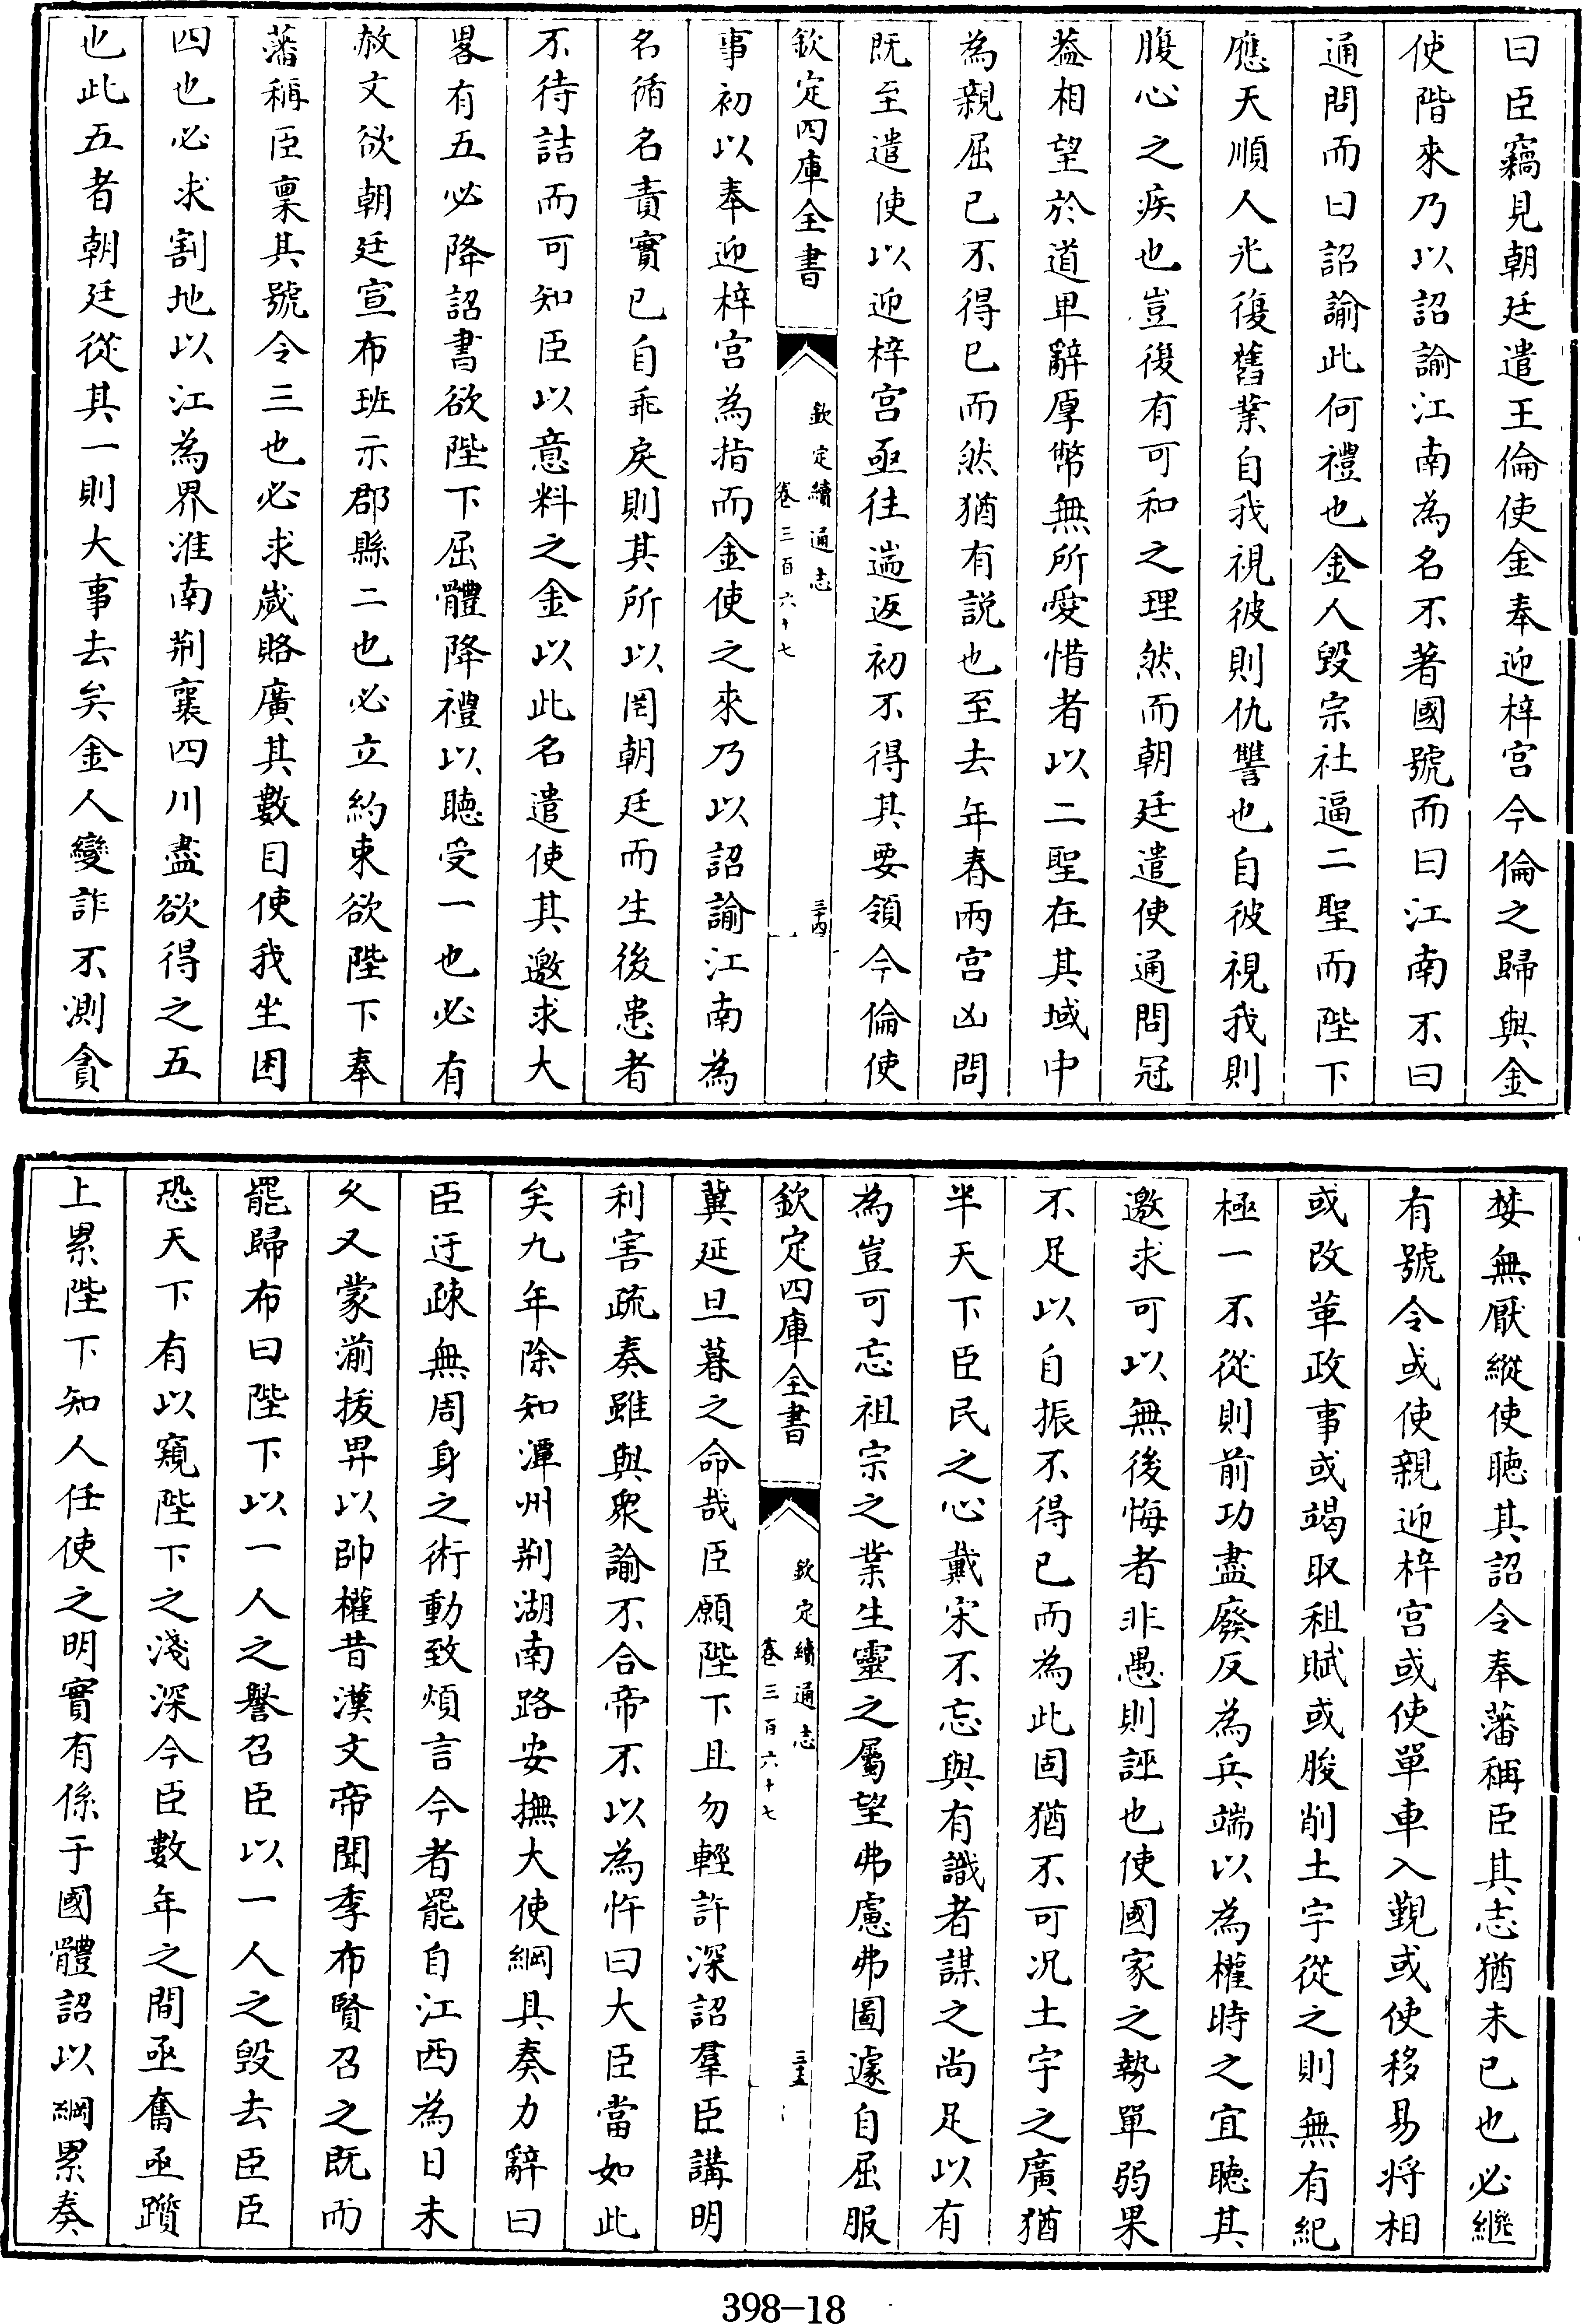 曰臣竊見朝廷遣王倫使金奉迎梓宫今倫之歸與金
使階來乃以詔諭江南為名不著國號而曰江南不曰
通問而曰詔諭此何禮也金人毀宗社逼二聖而陛下
應天順人光復舊業自我視彼則仇讐也自彼視我則
腹心之疾也豈復有可和之理然而朝廷遣使通問冠
葢相望於道卑辭厚幣無所愛惜者以二聖在其域中
為親屈已不得已而然猶有説也至去年春兩宫凶問
既至遣使以迎梓宫亟往遄返初不得其要領今倫使
欽定四庫全書
欽定續通志
卷三百六十七
三十四
事初以奉迎梓宫為指而金使之來乃以詔諭江南為
名循名責實已自乖戾則其所以罔朝廷而生後患者
不待詰而可知臣以意料之金以此名遣使其邀求大
畧有五必降詔書欲陛下屈體降禮以聽受一也必有
赦文欲朝廷宣布班示郡縣二也必立約束欲陛下奉
藩稱臣稟其號令三也必求嵗賂廣其數目使我坐困
四也必求割地以江為界淮南荆襄四川盡欲得之五
也此五者朝廷從其一則大事去矣金人變詐不測貪
婪無厭縱使聽其詔令奉藩稱臣其志猶未已也必繼
有號令或使親迎梓宫或使單車入覲或使移易将相
或改革政事或竭取租賦或朘削土宇從之則無有紀
極一不從則前功盡廢反為兵端以為權時之宜聽其
邀求可以無後悔者非愚則誣也使國家之勢單弱果
不足以自振不得已而為此固猶不可况土宇之廣猶
半天下臣民之心戴宋不忘與有識者謀之尚足以有
為豈可忘祖宗之業生靈之屬望弗慮弗圖遽自屈服
欽定四庫全書
欽定續通志
卷三百六十七
三十五
冀延旦暮之命哉臣願陛下且勿輕許深詔羣臣講明
利害疏奏雖與衆諭不合帝不以為忤曰大臣當如此
矣九年除知潭州荆湖南路安撫大使綱具奏力辭曰
臣迂疎無周身之術動致煩言今者罷自江西為日未
久又蒙湔拔畀以帥權昔漢文帝聞季布賢召之既而
罷歸布曰陛下以一人之譽召臣以一人之毀去臣臣
恐天下有以窺陛下之淺深今臣數年之間亟奮亟躓
上累陛下知人任使之明實有係于國體詔以綱累奏
398-18